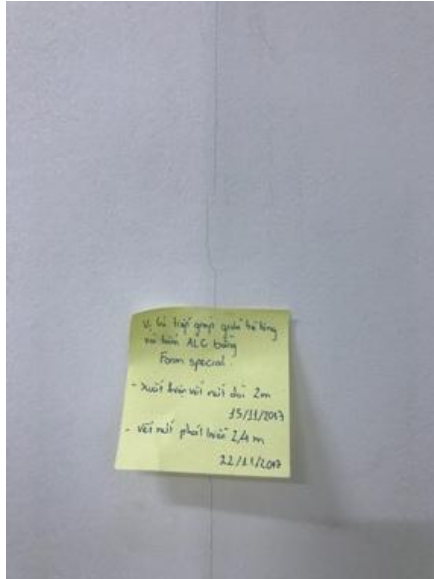 Vị trí tiếp giáp giữa bê tông
với tấm ALC bằng
Foam special.
- Xuất hiện vết nứt dài 2m
15/11/2017
- Vết nứt phát triển 2,4 m
22/11/2017